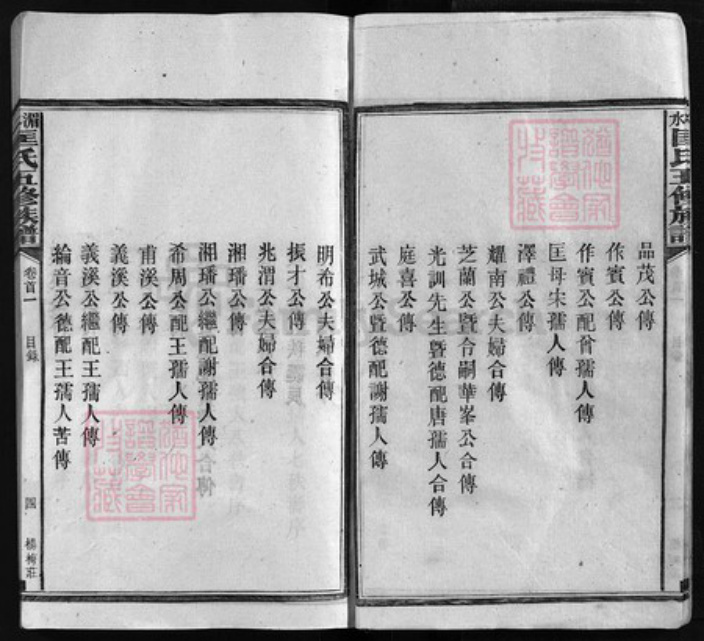 水匡氏五修族譜
品茂公傳
作賓公傳
作賓公配曾孺人傳
匡母宋孺人傳
澤禮公傳
耀南公夫婦合傳
芝蘭公暨令嗣華峯公合傳
光訓先生暨德配唐孺人合傳
庭喜公傳
武城公暨德配謝孺人傳
明希公夫婦合傳
振才公傳
兆渭公夫婦合傳
湘璠公傳
湘璠公繼配謝孺人傳
希周公配王孺人傳
甫溪公傳
義溪公傳
義溪公繼配王孺人傳
綸音公德配王孺人苦傳
湄匡氏五修族譜
卷首一
目錄
四
楊梅莊
猶他家
譜學會
特藏
猶他家
譜學會
特藏